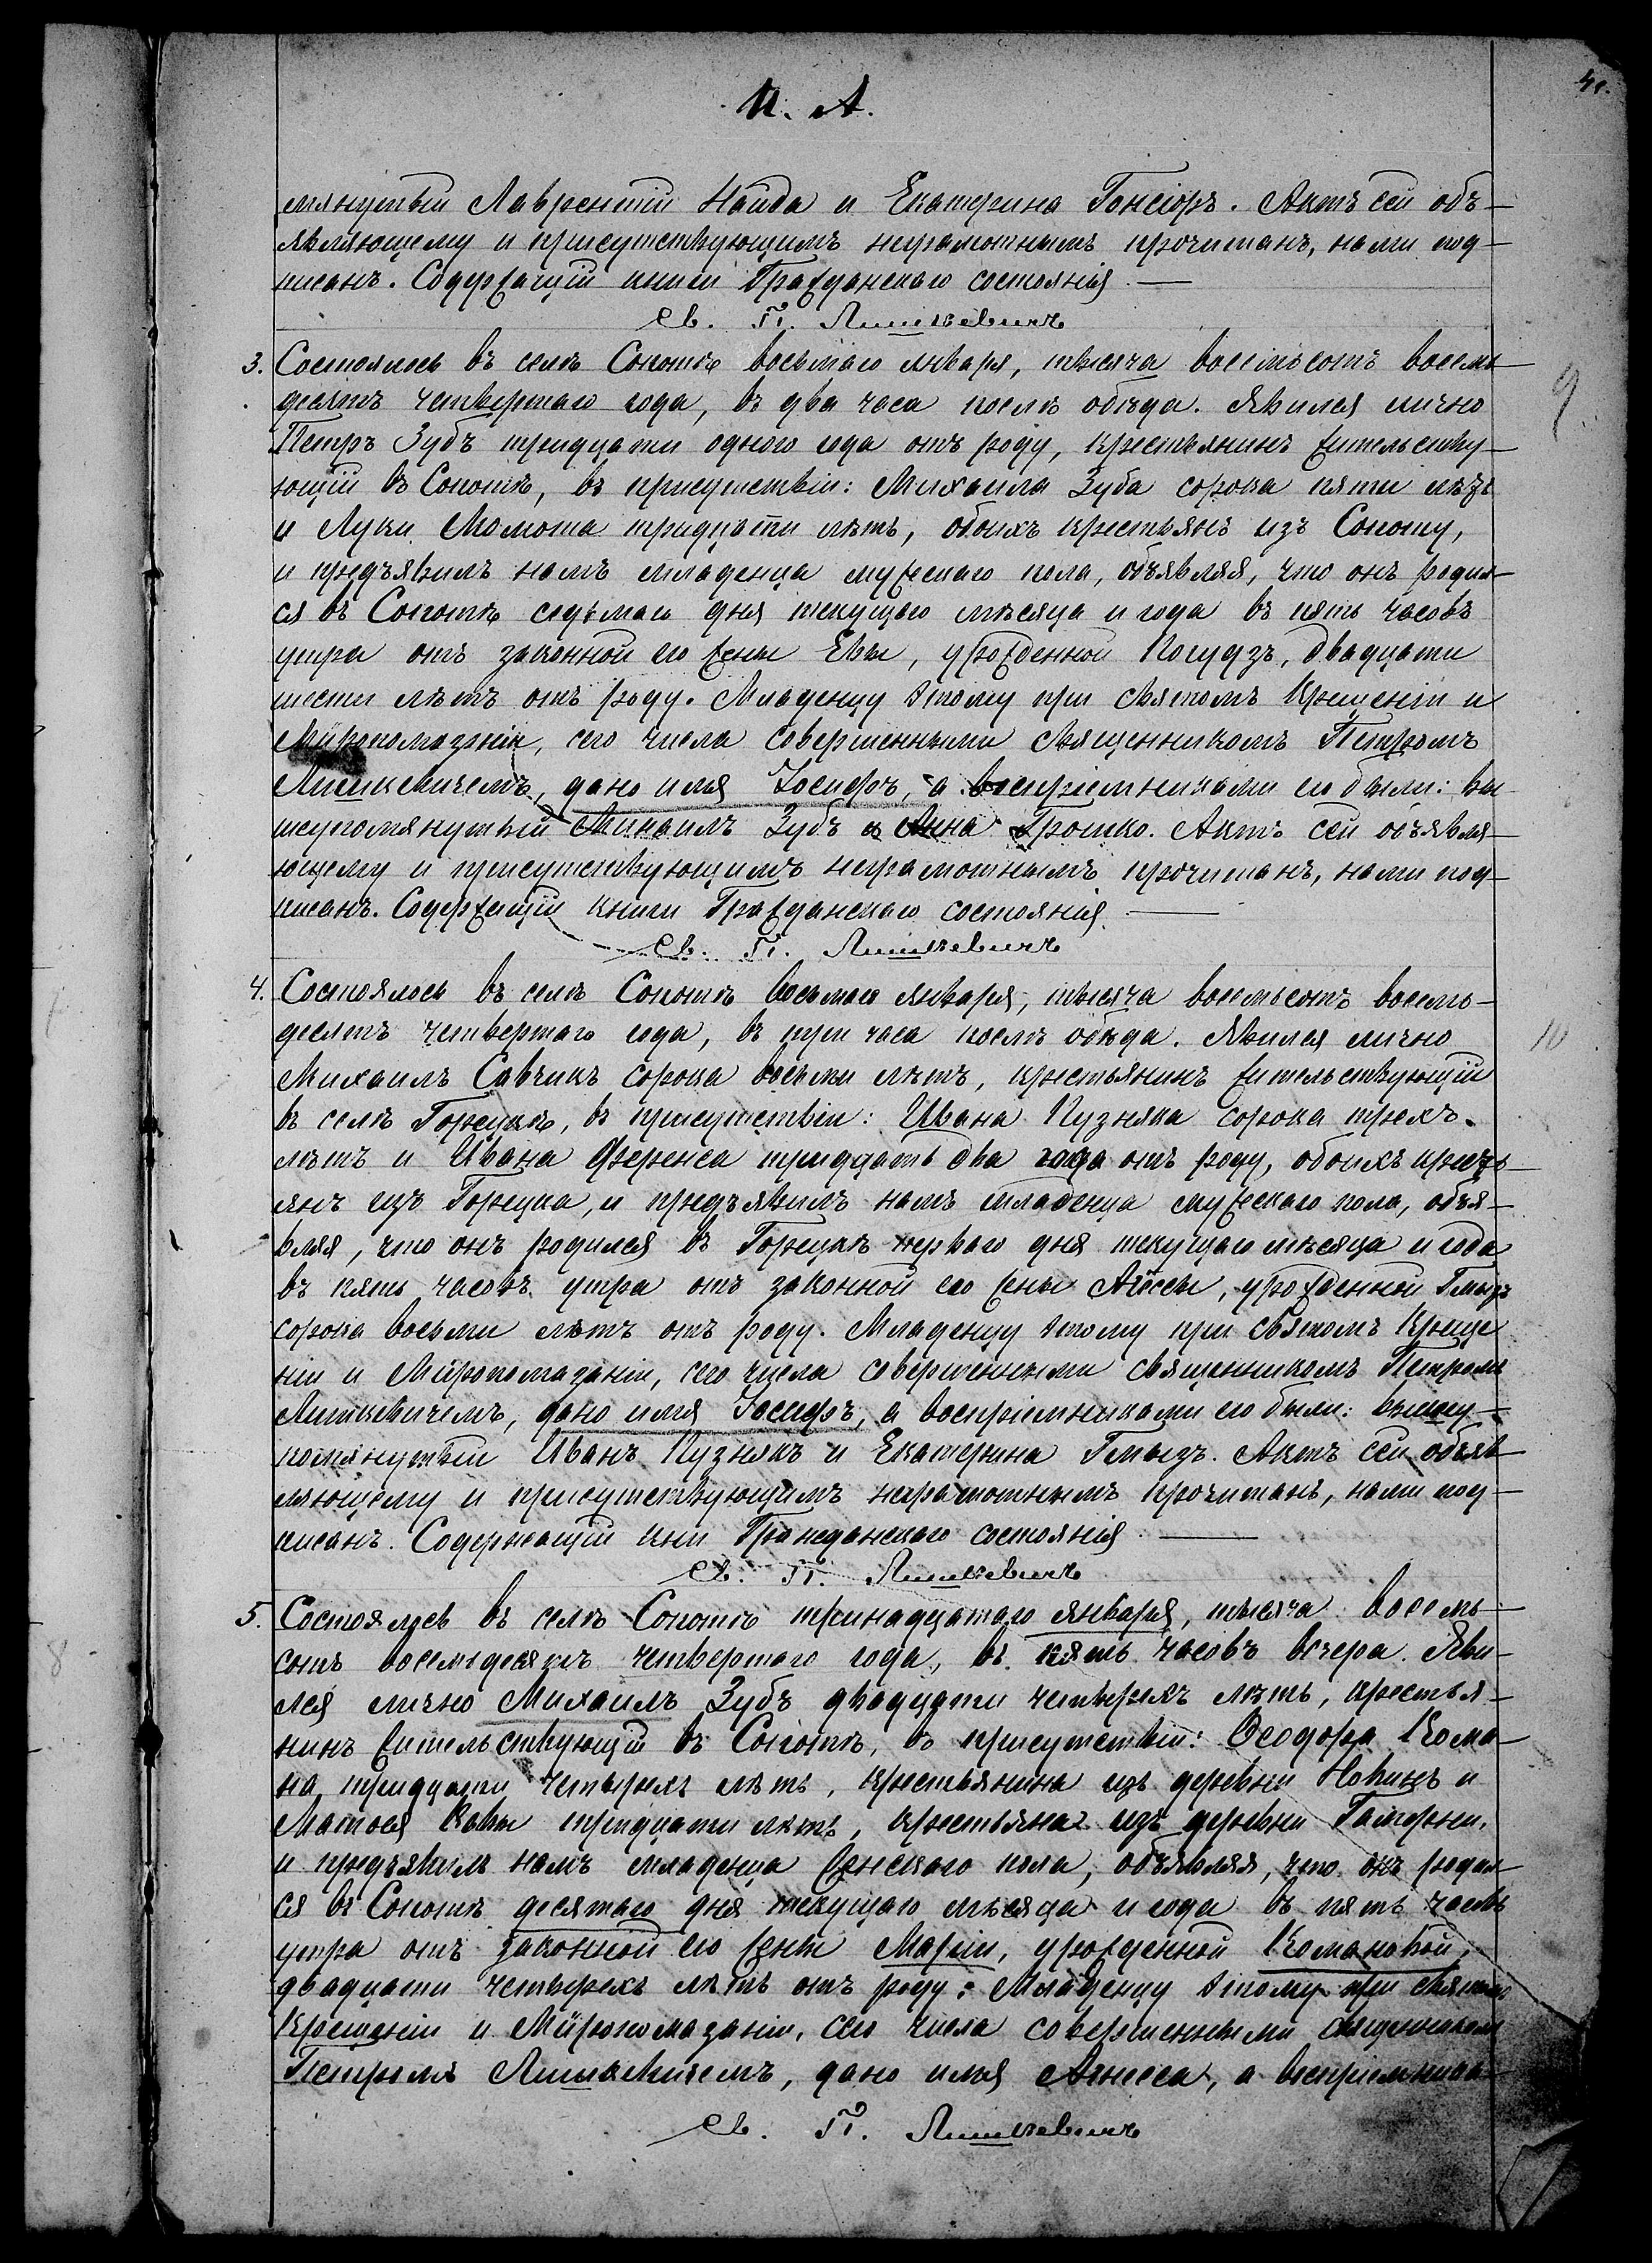 4е.
П. А.
мянутый Лаврентій Найда и Екатерина Гонсіоръ. Актъ сей объ-
являющему и присутствующимъ неграмотнымъ прочитанъ, нами под-
писанъ. Содержащій книги Гражданскаго состоянія. —
Св. П. Лишкевичъ
3. Состоялось въ селѣ Сопотѣ восьмаго января, тысяча восемьсотъ восемь-
десятъ четвертаго года, въ два часа послѣ обѣда. Явился лично
Петръ Зубъ тридцати одного года отъ роду, крестьянинъ жительству-
ющій въ Сопотѣ, въ присутствіи: Михаила Зуба сорока пяти лѣтъ
и Луки Момота тридцати лѣтъ, обоихъ крестьянъ изъ Сопоту,
и предъявилъ намъ младенца мужескаго пола, объявляя, что онъ родил-
ся въ Сопотѣ седьмаго дня текущаго мѣсяца и года въ пять часовъ
утра отъ законной его жены Евы, урожденной Погудзъ, двадцати
шести лѣтъ отъ роду. Младенцу этому при святомъ Крещеніи и
Мѵропомазаніи, сего числа совершенными священникомъ Петромъ
Лишкевичемъ, дано имя Іосифъ, а воспріемниками его были: вы-
шеупомянутый Михаилъ Зубъ и Анна Грошко. Актъ сей объявля-
ющему и присутствующимъ неграмотнымъ прочитанъ, нами под-
писанъ. Содержащій книги Гражданскаго состоянія. —
Св. П. Лишкевичъ
9
4. Состоялось въ селѣ Сопотѣ восьмаго января, тысяча восемьсотъ восемь-
десятъ четвертаго года, въ три часа послѣ обѣда. Явился лично
Михаилъ Савчикъ сорока восьми лѣтъ, крестьянинъ жительствующій
въ селѣ Горецкѣ, въ присутствіи: Ивана Кузняка сорока трехъ
лѣтъ и Ивана Ференса тридцать два года отъ роду, обоихъ кресть-
янъ изъ Горецка, и предъявилъ намъ младенца мужескаго пола, объя-
вляя, что онъ родился въ Горецкѣ перваго дня текущаго мѣсяца и года
въ пять часовъ утра отъ законной его жены Агнесы, урожденной Гмызъ
сорока восьми лѣтъ отъ роду. Младенцу этому при святомъ Креще-
ніи и Мѵропомазаніи, сего числа совершенными священникомъ Петромъ
Лишкевичемъ, дано имя Іосифъ, а воспріемниками его были: вышеу-
помянутый Иванъ Кузнякъ и Екатерина Гмызъ. Актъ сей объяв-
ляющему и присутствующимъ неграмотнымъ прочитанъ, нами под-
писанъ. Содержащій кни Гражданскаго состоянія. —
Св. П. Лишкевичъ
10
5. Состоялось въ селѣ Сопотѣ тринадцатаго января, тысяча восемь-
сотъ восемьдесятъ четвертаго года, въ пять часовъ вечера. Яви-
лся лично Михаилъ Зубъ двадцати четырехъ лѣтъ, крестья-
нинъ жительствующій въ Сопотѣ, въ присутствіи: Ѳеодора Кома-
на тридцати четырехъ лѣтъ, крестьянина изъ деревни Новинъ и
Матѳея Ковы тридцати лѣтъ, крестьяна изъ деревни Гамерни,
и предъявилъ намъ младенца женскаго пола, объявляя, что онъ родил-
ся въ Сопотѣ десятаго дня текущаго мѣсяца и года въ пять часовъ
утра отъ законной его жены Маріи, урожденной Комановой,
двадцати четырехъ лѣтъ отъ роду. Младенцу этому при святомъ
Крещеніи и Мѵропомазаніи, сего числа совершенными священникомъ
Петромъ Лишкевичемъ, дано имя Агнесса, а воспріемника-
Св. П. Лишкевичъ
8